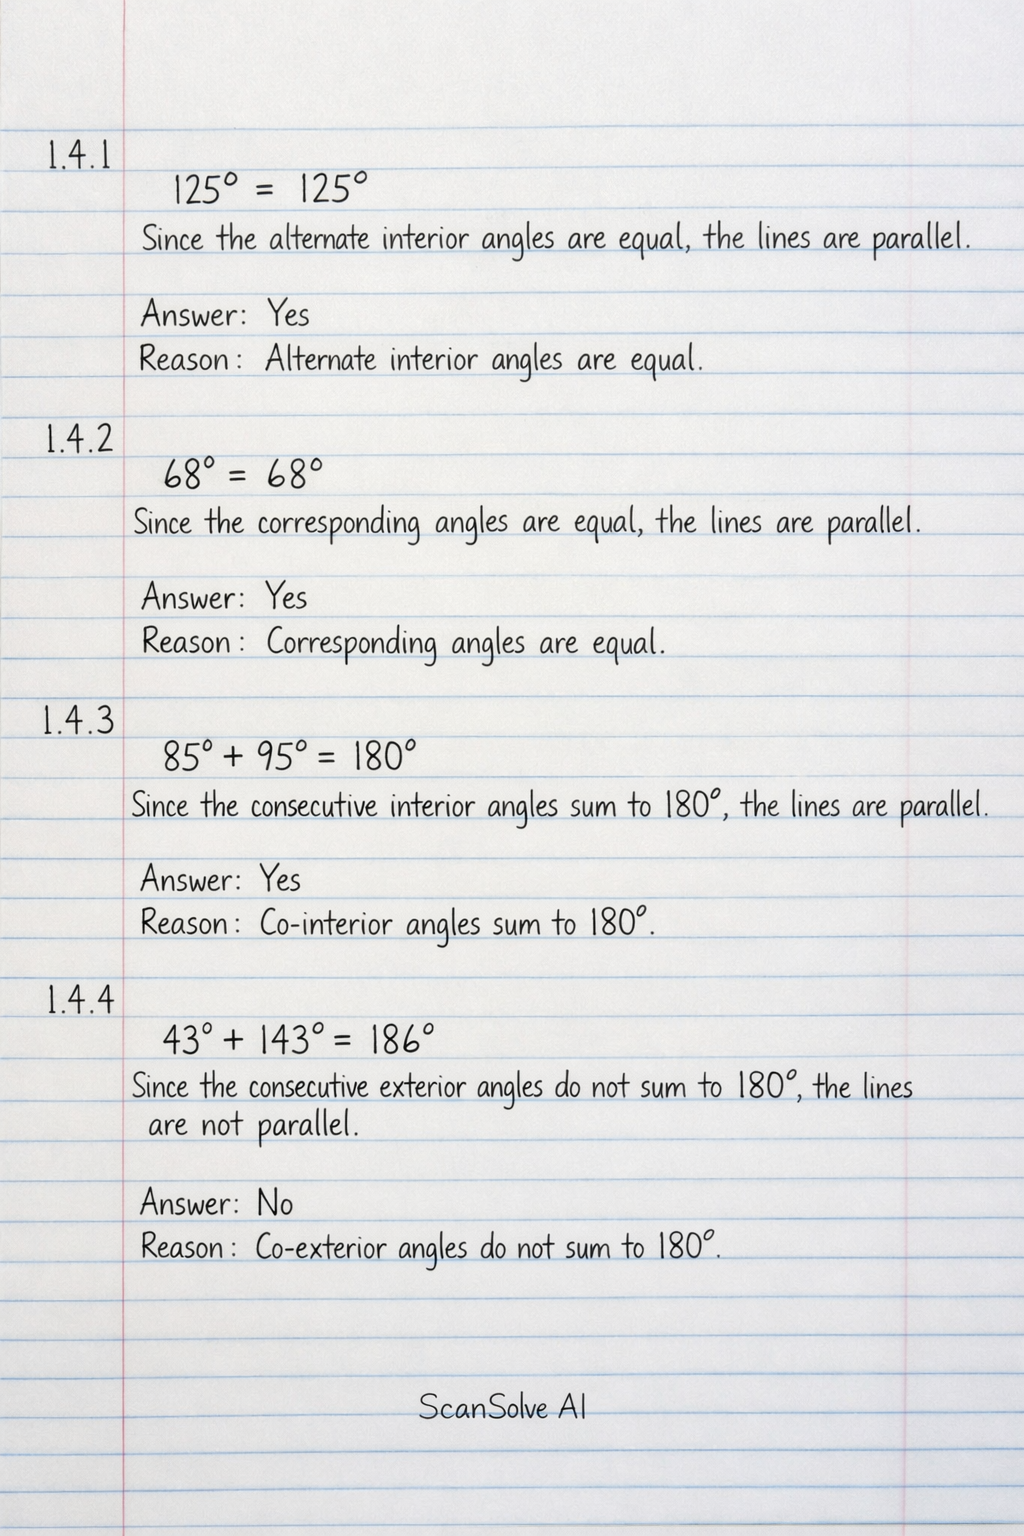 1.4.1
125° = 125°
Since the alternate interior angles are equal, the lines are parallel.
Answer: Yes
Reason: Alternate interior angles are equal.
1.4.2
68° = 68°
Since the corresponding angles are equal, the lines are parallel.
Answer: Yes
Reason: Corresponding angles are equal.
1.4.3
85° + 95° = 180°
Since the consecutive interior angles sum to 180°, the lines are parallel.
Answer: Yes
Reason: Co-interior angles sum to 180°.
1.4.4
43° + 143° = 186°
Since the consecutive exterior angles do not sum to 180°, the lines
are not parallel.
Answer: No
Reason: Co-exterior angles do not sum to 180°.
ScanSolve AI